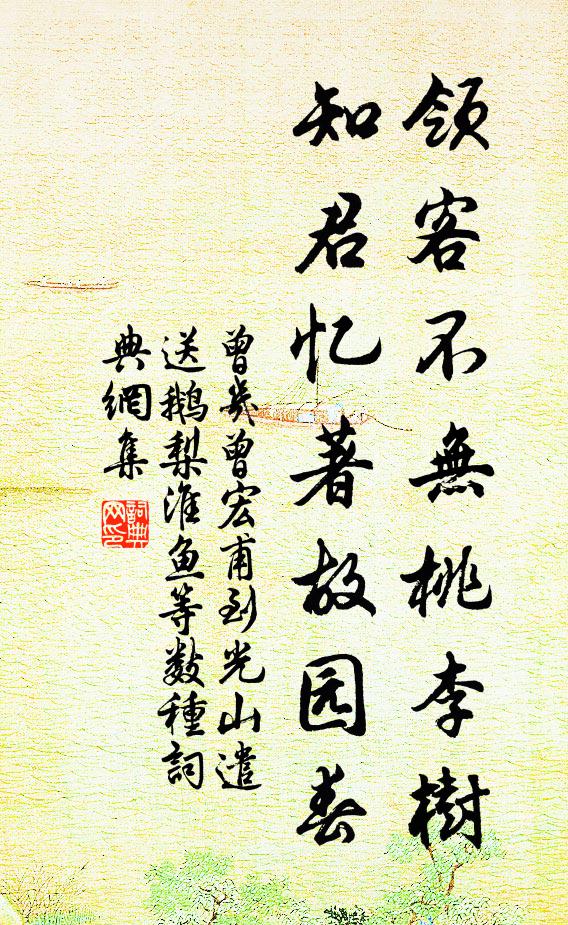 领客不無桃李樹
知君忆著故园春
曾幾曾宏甫到光山遣
送鵝梨淮鱼等数種詞
典網集
詞典
网印